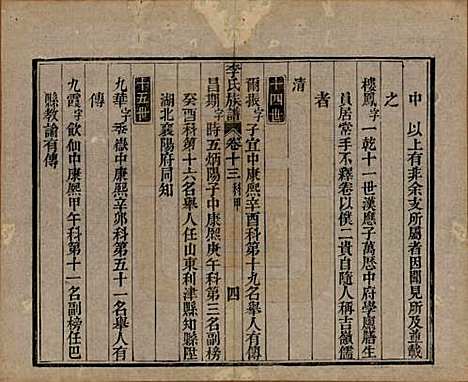 中 以上有非余支所屬者因聞見所及尊載
之
樓鳳字一乾十一世漢應子萬歷中府學廩膳生
員居常手不釋卷以僕二貴自防人稱古嶺儒
者
清
十四世
爾振字子宜中康熙辛酉科第十九名舉人有傳
李氏族譜 卷十三 科甲 四
昌期字時五炳陽子中康熙庚午科第三名副榜
癸酉科第十六名舉人任山東利津縣知縣陞
湖北襄陽府同知
十五世
九華字泰嶽中康熙辛卯科第五十一名舉人有
傳
九霞字飲仙中康熙甲午科第十一名副榜任巴
縣教諭有傳